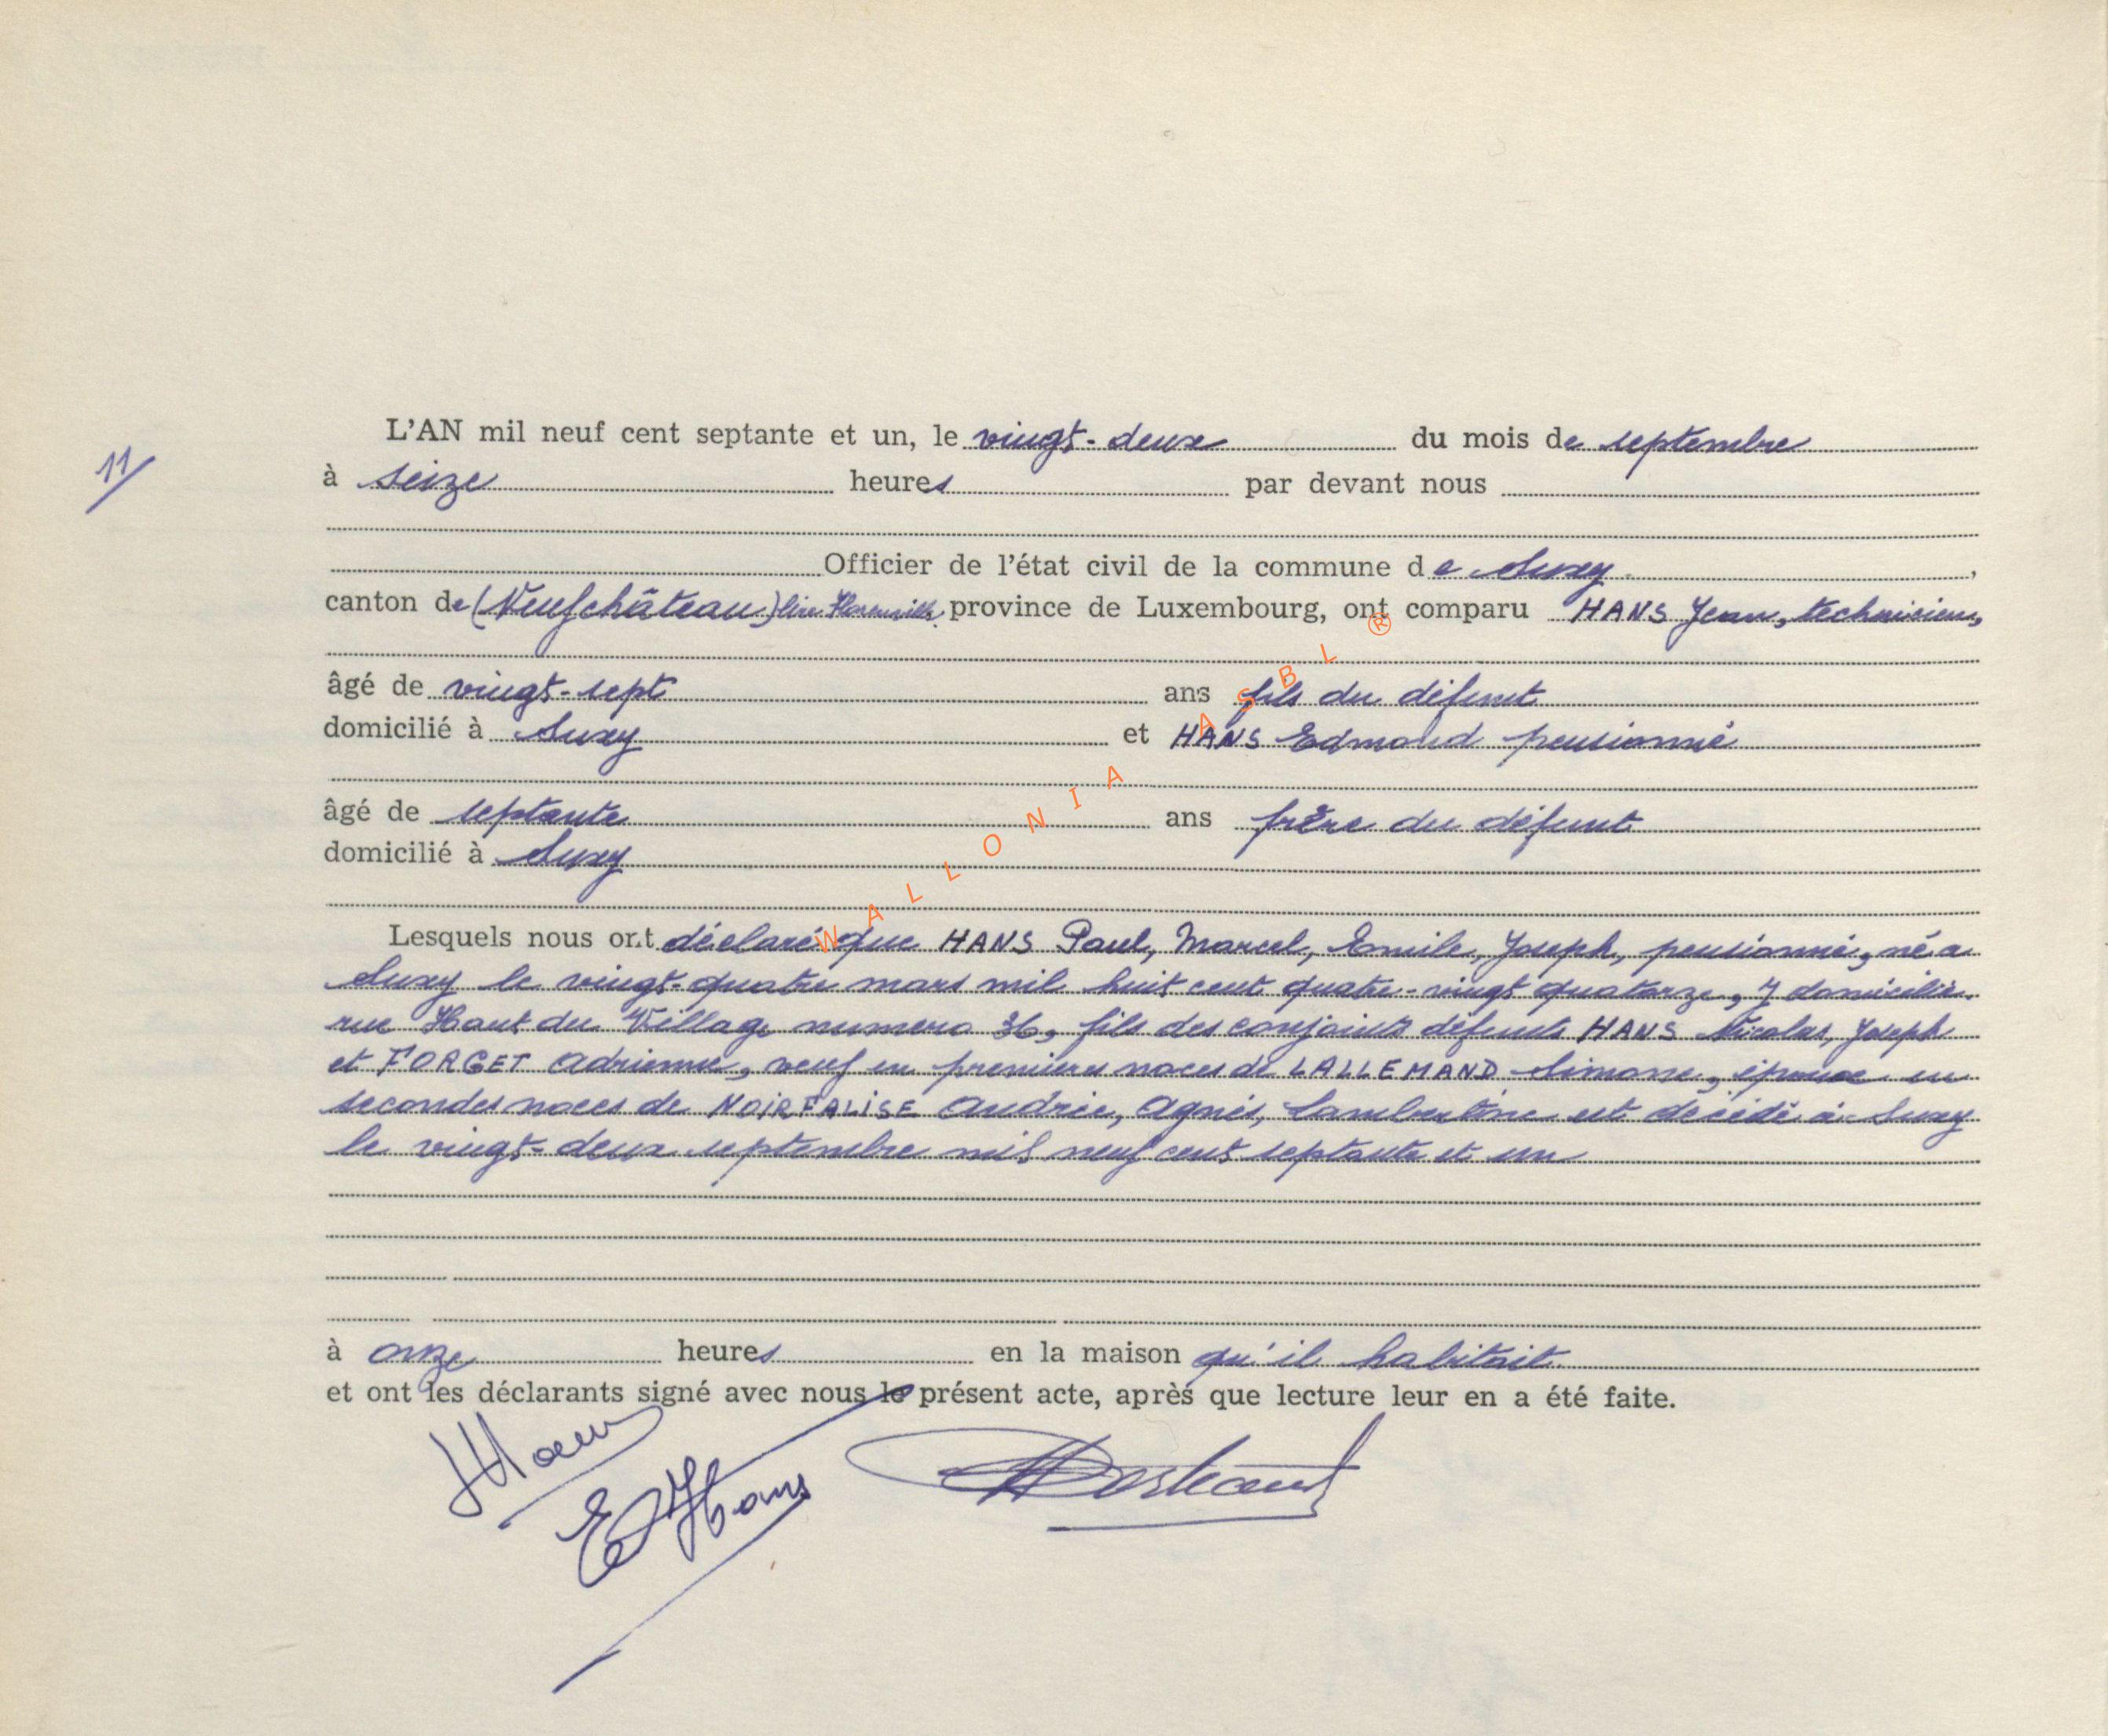 11/
L'AN mil neuf cent septante et un, le vingt-deux du mois de septembre
à seize heures par devant nous
Officier de l'état civil de la commune de Suxy,
canton de (Neufchâteau) lire Florenville province de Luxembourg, ont comparu HANS Jean, technicien,
âgé de vingt-sept ans fils du défunt
domicilié à Suxy et HANS Edmond pensionné
âgé de septante ans frère du défunt
domicilié à Suxy
Lesquels nous ont déclaré que HANS Paul, Marcel, Emile, Joseph, pensionné, né à
Suxy le vingt-quatre mars mil huit cent quatre-vingt quatorze, y domicilié,
rue Haut du Village numero 36, fils des conjoints défunts HANS Nicolas, Joseph
et FORGET Adrienne, veuf en premieres noces de LALLEMAND Simone, époux en
secondes noces de NOIRFALISE Andrée, Agnès, Lambertine est décédé à Suxy
le vingt-deux septembre mil neuf cent septante et un
à onze heures en la maison qu'il habitait
et ont les déclarants signé avec nous le présent acte, après que lecture leur en a été faite.
JHans
E Hans
WALLONIA ASBL ®